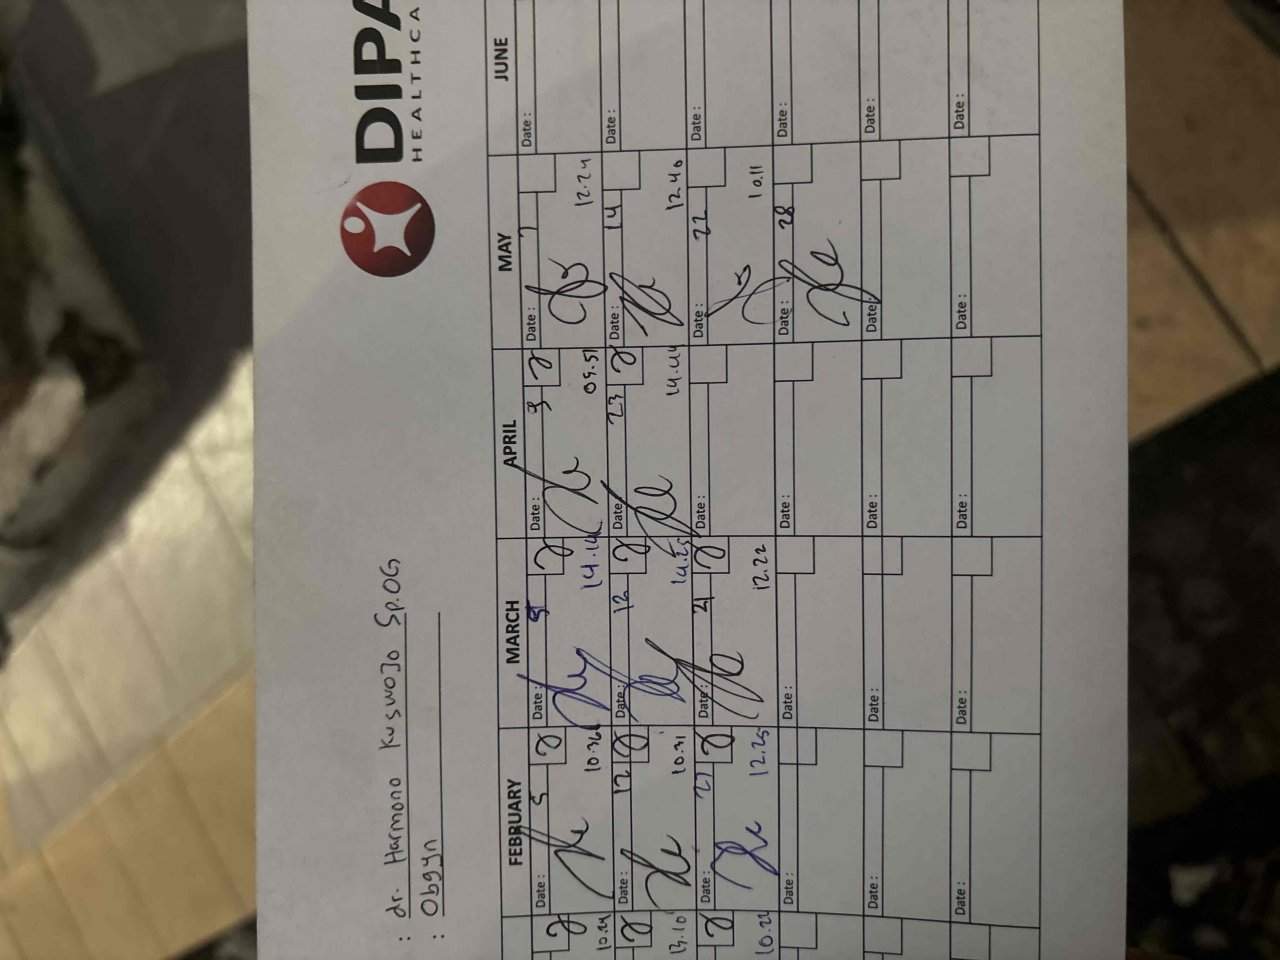 DIPA
HEALTHCA
: dr. Harmono Kuswojo Sp.OG
: Obgyn
FEBRUARY MARCH APRIL MAY JUNE
Date : 5 Date : 5 Date : 3 Date : 7 Date :
10.24 10.36 14.14 09.51 12.24
Date : 12 Date : 12 Date : 23 Date : 14 Date :
13.10 10.31 14.25 14.44 12.40
Date : 27 Date : 21 Date : Date : 22 Date :
10.22 12.25 12.22 10.11
Date : Date : Date : Date : 28 Date :
Date : Date : Date : Date : Date :
Date : Date : Date : Date : Date :